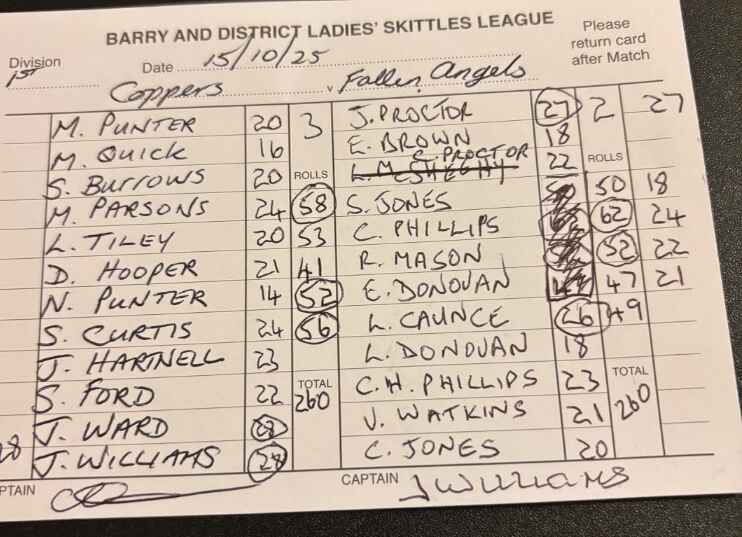 BARRY AND DISTRICT LADIES' SKITTLES LEAGUE
Please return card after Match
Division 1st Date 15/10/25
Coppers v Fallen Angels
M. PUNTER 20 3 J. PROCTOR 27 2 27
M. QUICK 16 E. BROWN 18
S. BURROWS 20 ROLLS E. PROCTOR 22 ROLLS
M. PARSONS 24 58 S. JONES 50 18
L. TILEY 20 53 C. PHILLIPS 62 24
D. HOOPER 21 41 R. MASON 52 22
N. PUNTER 14 52 E. DONOVAN 47 21
S. CURTIS 24 56 L. CAUNCE 26 49
J. HARTNELL 23 L. DONOVAN 18
S. FORD 22 TOTAL 260 C.H. PHILLIPS 23 TOTAL 260
28 J. WARD 28 V. WATKINS 21
J. WILLIAMS 28 C. JONES 20
PTAIN CAPTAIN J WILLIAMS